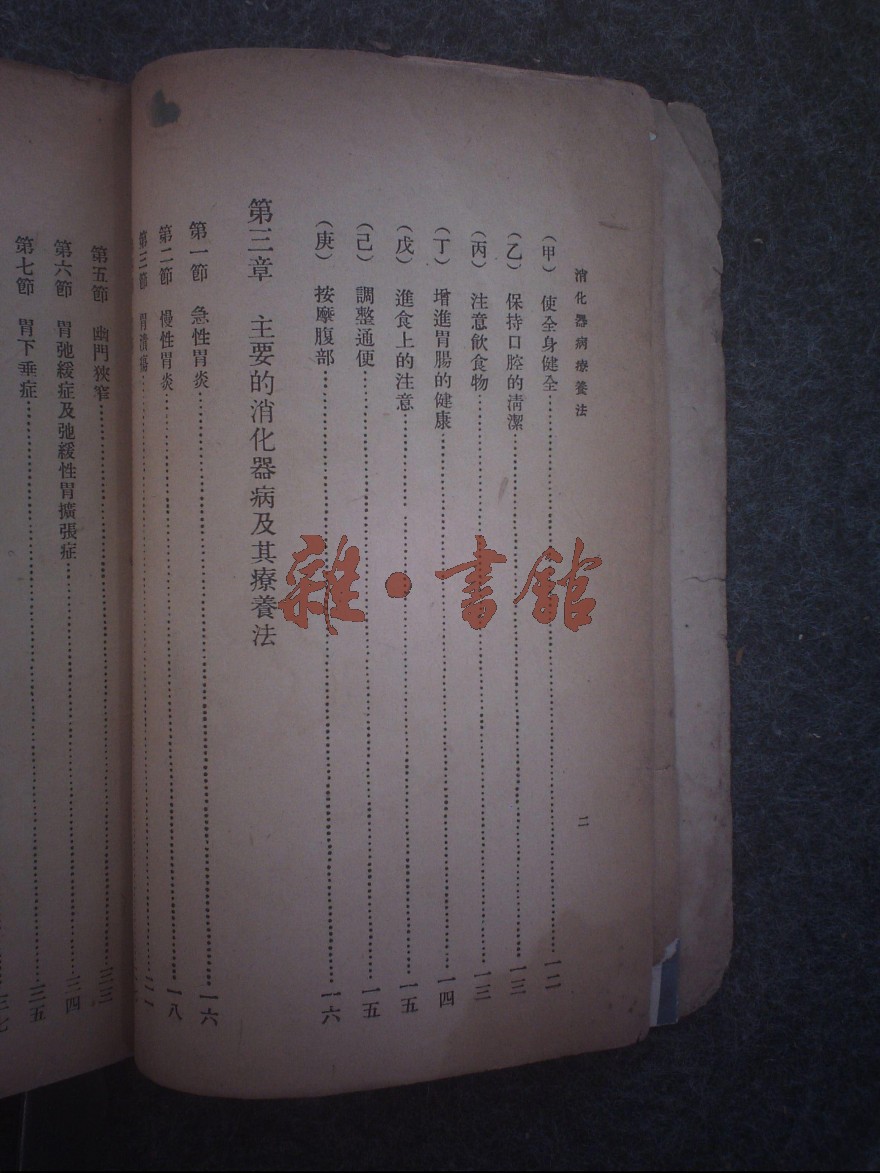 消化器病療養法
二
（甲）　使全身健全……一二
（乙）　保持口腔的淸潔……一三
（丙）　注意飲食物……一三
（丁）　增進胃腸的健康……一四
（戊）　進食上的注意……一五
（己）　調整通便……一五
（庚）　按摩腹部……一六
第三章　主要的消化器病及其療養法
第一節　急性胃炎……一六
第二節　慢性胃炎……一八
第三節　胃潰瘍……
第五節　幽門狹窄……三三
第六節　胃弛緩症及弛緩性胃擴張症……三四
第七節　胃下垂症……三五
三七
雜·書館